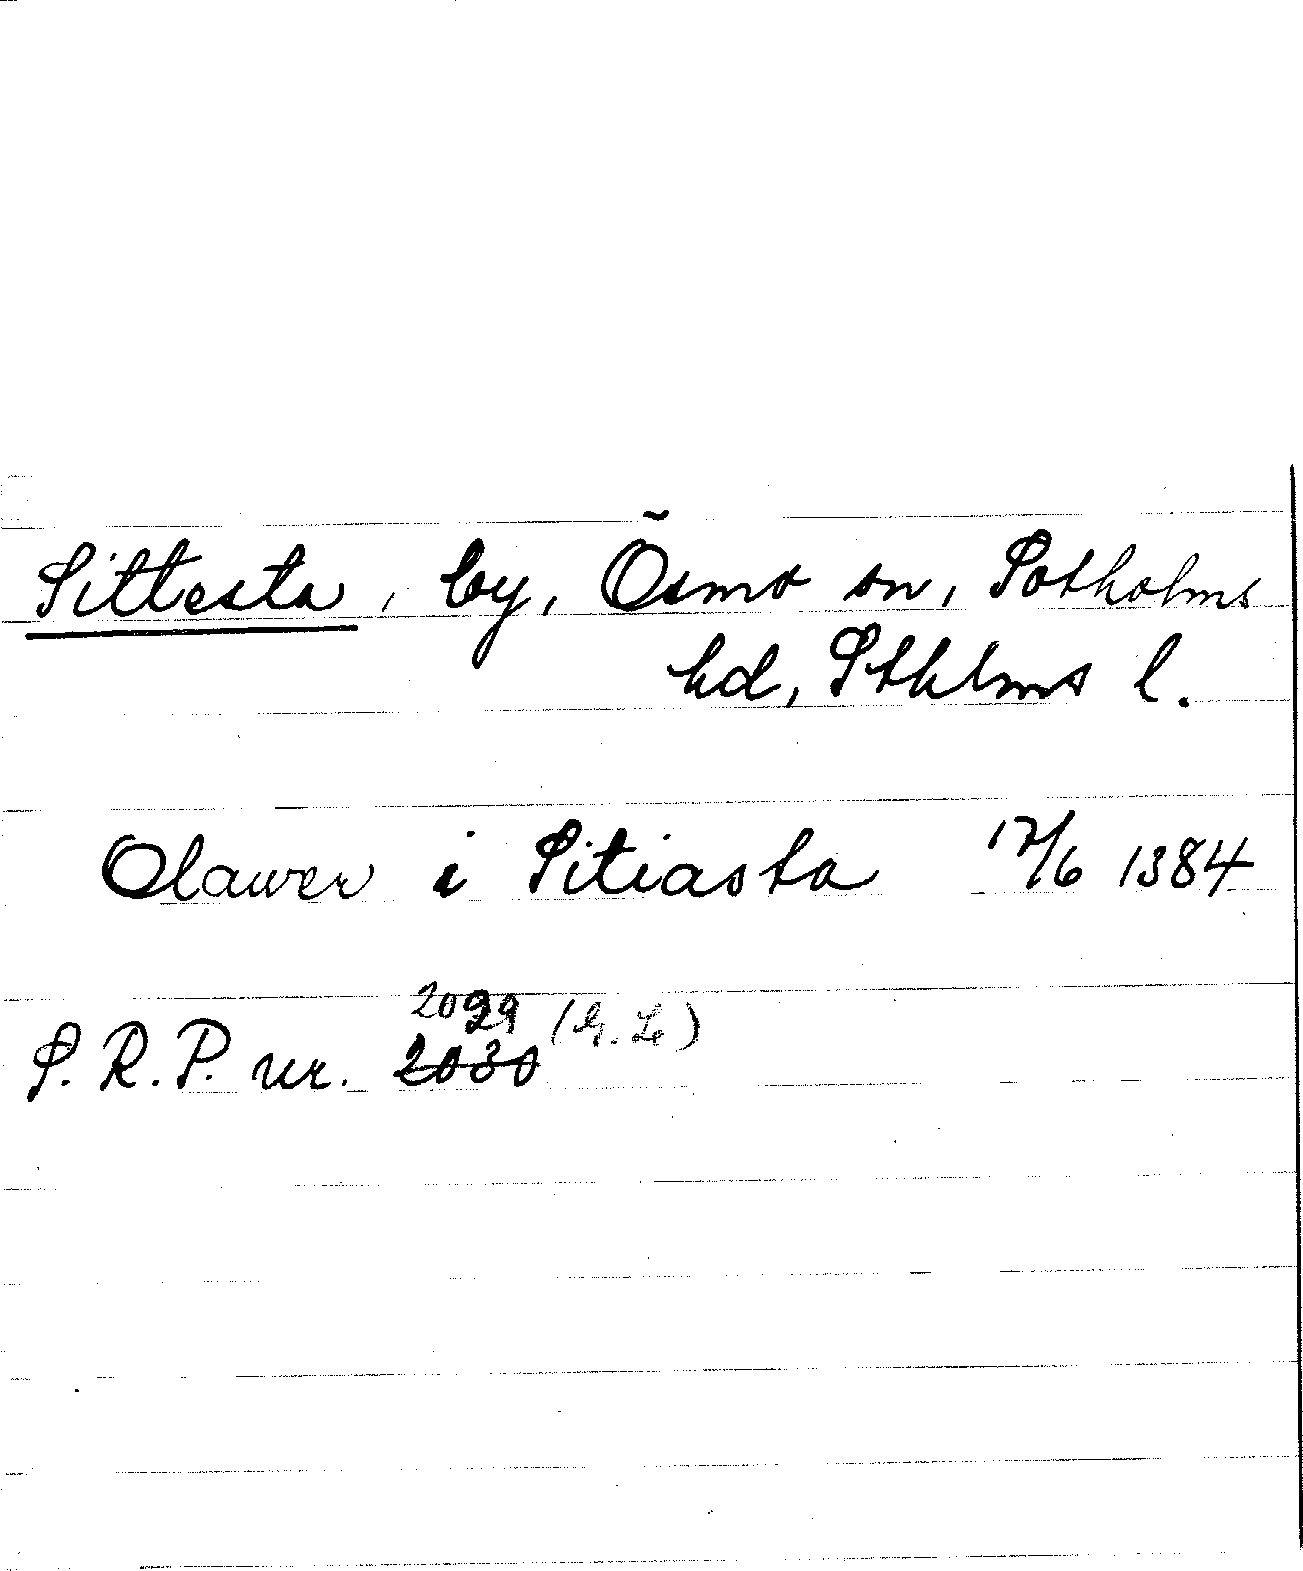 Sittesta, by, Ösmo sn, Sotholms
hd, Sthlms l.
Olawer i Sitiasta 17/6 1384
2029 (G. L)
S. R. P. nr. 2030